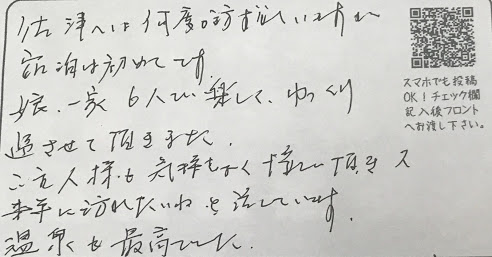 佐津へは何度も訪ずれていますが
宿泊は初めてです。
娘、一家6人で楽しく、ゆっくり
過させて頂きました。
ご主人様も気持もよく接して頂き又
来年に訪れたいねと話しています。
温泉も最高でした。
スマホでも投稿
OK!チェック欄
記入後フロント
へお渡し下さい。